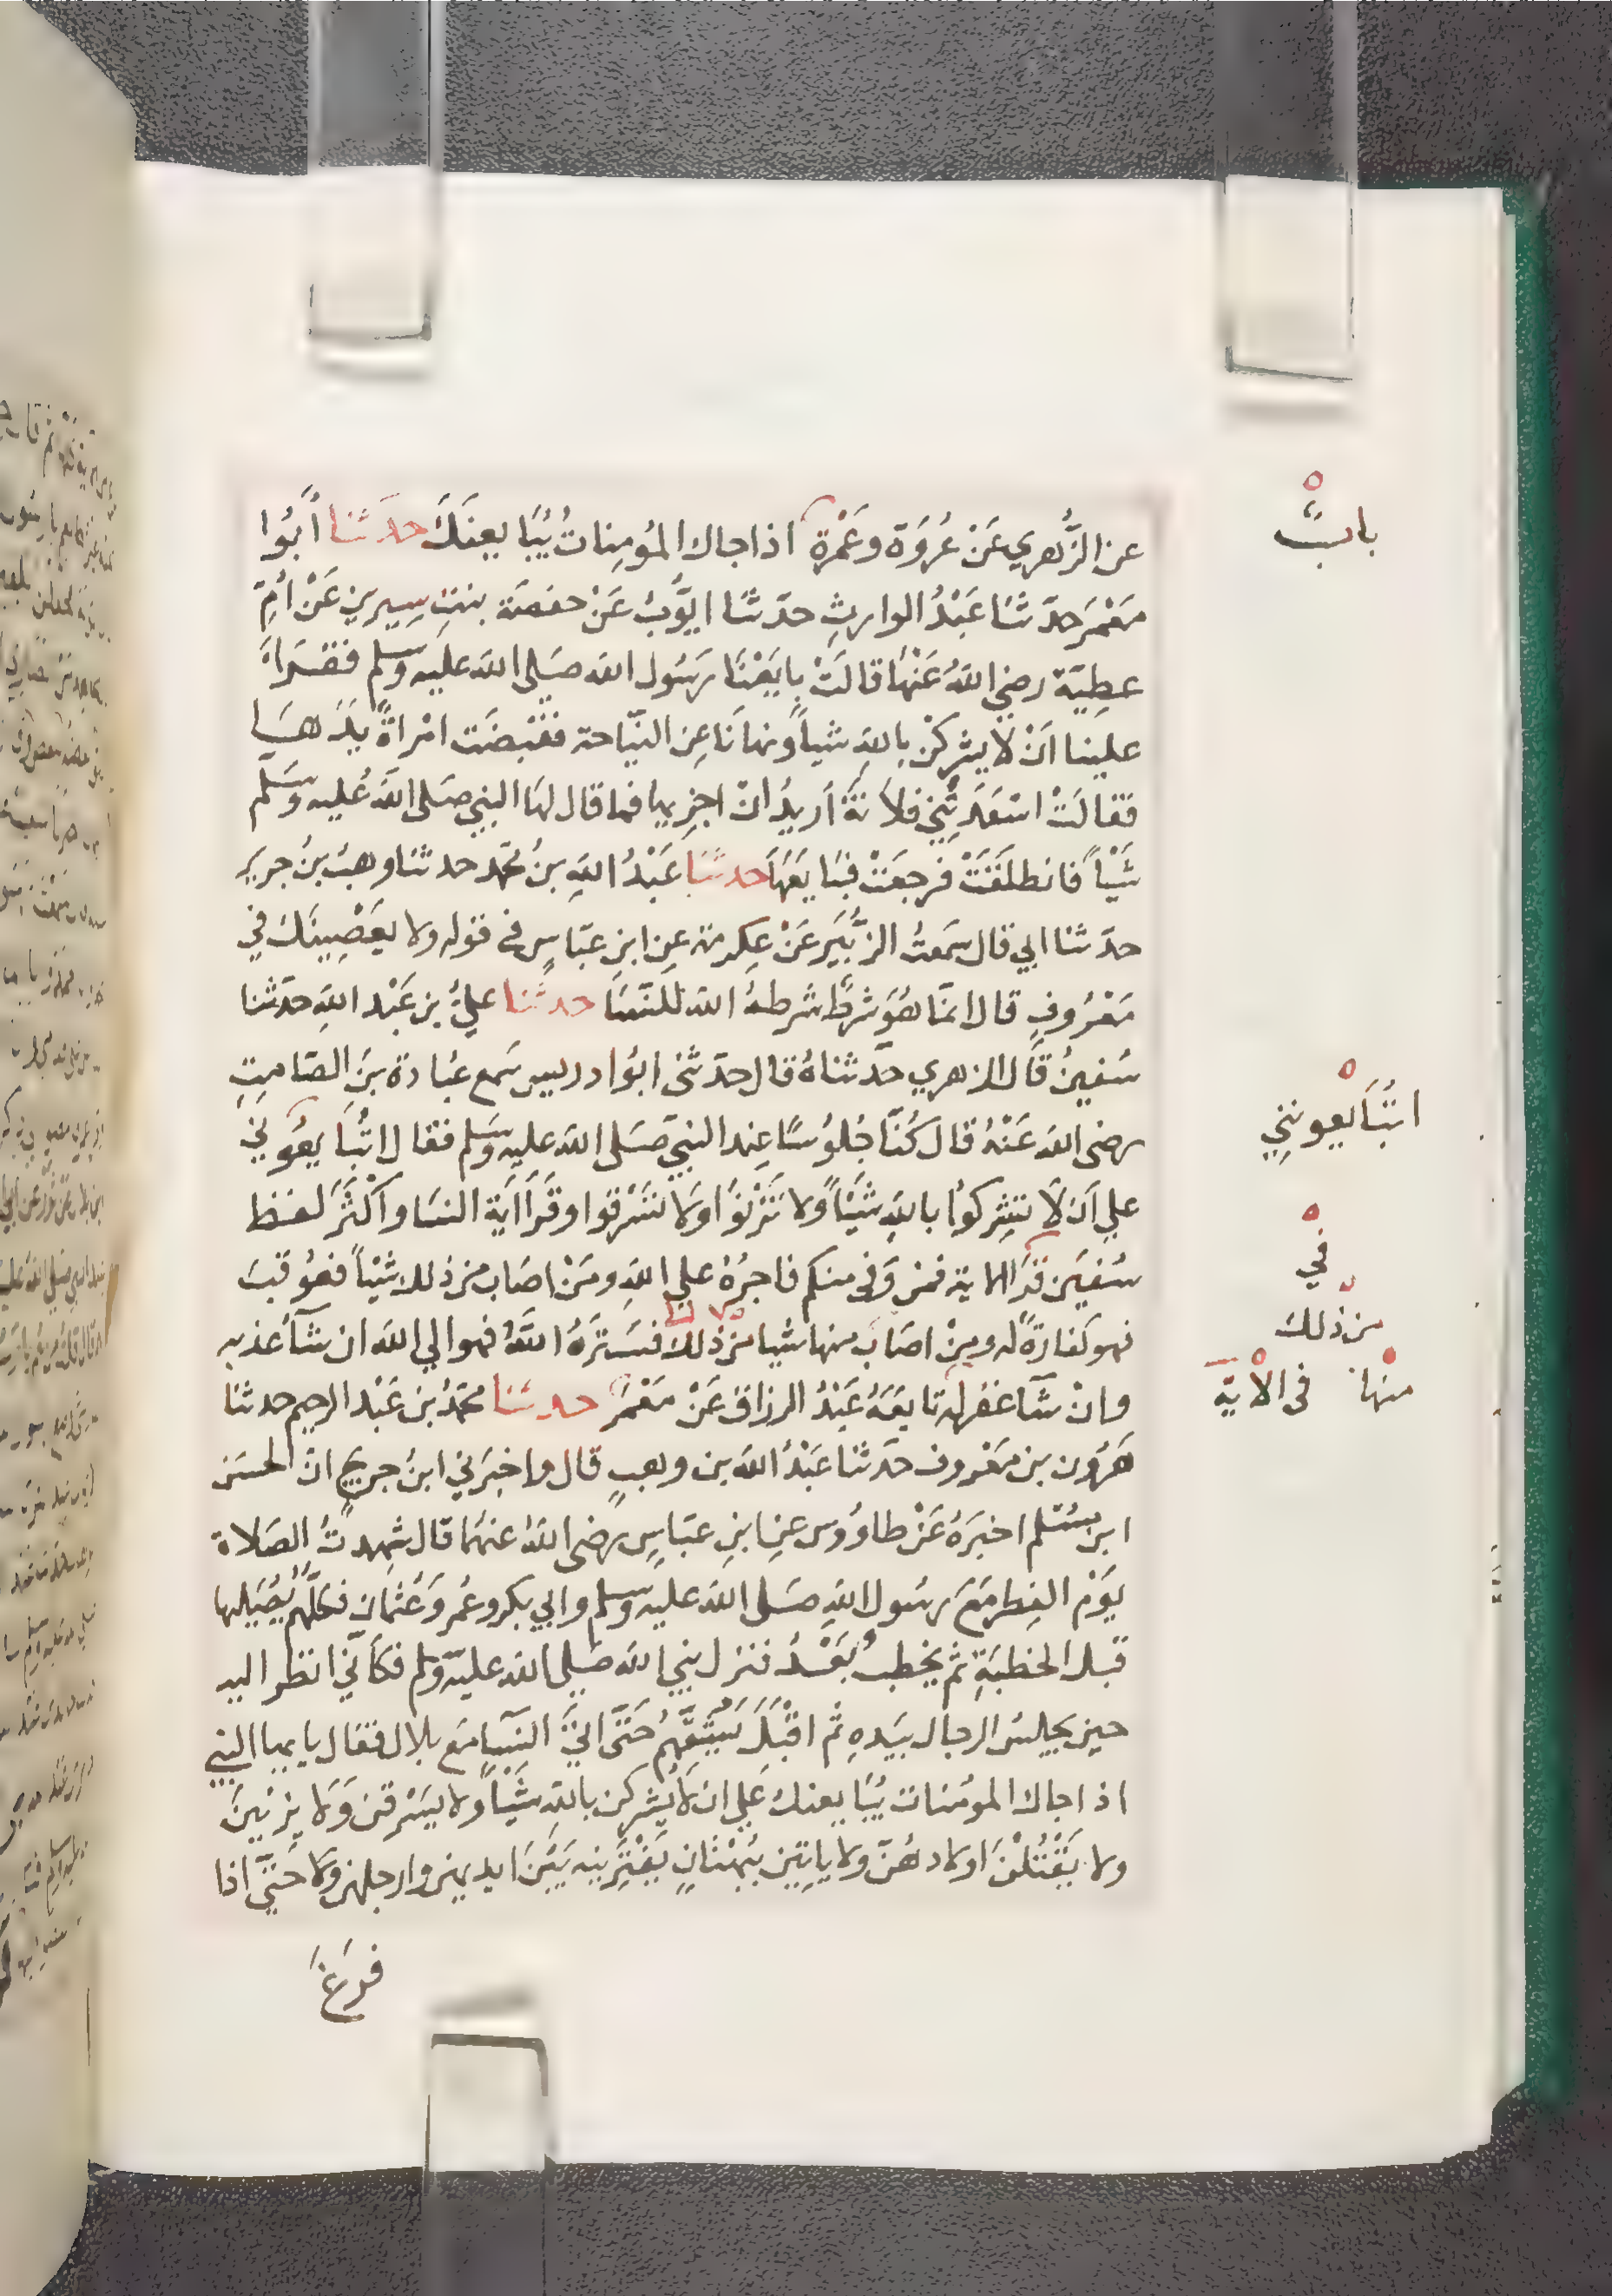 عن الزُّهري عَنْ عُرْوَة وعَمْرة اذا جاك المُومِناتُ يُبَايعنَكَ حدثنا أبُوا
مَعْمَر حدَّثنا عَبْدُ الوارِثِ حدثنا ايّوبُ عَنْ حفصَة بنتِ سِيرين عَنْ أُمّ
عطِيَّة رضي اللهُ عَنْهَا قالَتْ بايَعْنَا رَسُول الله صَلى الله عليه وسلم فقرأ
علينا اَنْ لا يشركْنَ بالله شيأ ونهانَا عِن النّياحة فقبضَت امْراةٌ يدَهَا
فقالَتْ اسْعَدَتْني فلانةُ اُريدُ انْ اجزيها فما قال لهَا النبي صَلى اللهُ عليه وسَلم
شَيْأً فانطلَقَتْ فرجعَتْ فبَايَعَهَا حدثنا عَبْدُ اللهِ بنُ محمّد حدثنا وهبُ بنُ جرير
حدّثنا ابي قال سَمعتُ الزُّبَير عَنْ عِكرمة عن ابنِ عبّاسٍ في قوله ولا يعْصِينَك في
مَعْرُوفٍ قال انمَّا هُوَ شرطٌ شرطهُ الله للنّسَا حدثنا عليُّ بن عَبْد اللهِ حدّثنا
سُفينُ قال الزهري حدّثناهُ قال حدّثنى ابُوا دريس سَمع عبُادة بنَ الصّامِتِ
رضى الله عَنْهُ قال كُنّا جُلوُسًا عِند النبيّ صَلى الله عليه وَسَلم فقال اتُبَايعُوني
علي اَن لَّا تشركوُا باللهِ شَيْأً ولا تَزْنوُا ولا تسَرقوا وقَرَأ اَيةَ النسَا واكْثَرُ لفظ
سُفيَن قرَا الاية فمن وَفى منكم فاجرُهُ علي اللهِ ومَنْ اصَاب من ذلك شَيْأً فعُوقبَ
فهو كفارةٌ له ومنْ اصَابَ منها شيا من ذلك فسَترَهُ اللَّهُ فهو الي الله ان شآ عذبه
وانْ شَآ غفرله تابعَهُ عَبْدُ الرزاق عَنْ مَعْمَرٍ حدثنا محمّدُ بن عَبْد الرحيم حدثنا
هَرُون بن مَعْروف حَدثنا عَبْدُ الله بن وهبٍ قال واخبَرَني ابنُ جريجٍ انّ الحسَن
ابن مسْلم اخبَرَهُ عَنْ طاووُس عن ابنِ عبّاسٍ رضى اللهُ عنهُما قال شهدتُ الصَلاة
يوَم الفِطر مَعَ رسُول اللهِ صَلى الله عليه وسلم وابي بكر وعُمر وَعُثمان فكلّهُم يُصَليها
قبل الخطبَةِ ثم يخطبُ بَعْدُ فنزل نبي الله صَلي الله عليه وَسلم فكأنّي انظر اليه
حين يجلِسُ الرجال بيَدهِ ثم اقبلَ يشُقُّهمُ حَتَّى اتَي النسَآ مَع بلال فقال يا يها النبي
اذا جاك المومُنات يُبَايعنك علي ان لاّ يُشركن بالله شَيْأً ولا يسَرقن وَلا يزنِينَ
ولا يقْتُلْنَ اولادهُنّ ولا ياتِين ببُهْتانٍ يَفْتَرينه بَيْنَ ايديهن وارجلهن ولا حَتّي اذا
فرغَ
بابٌ
اتبُايعوننِي
في
من ذلك
منها في الآية